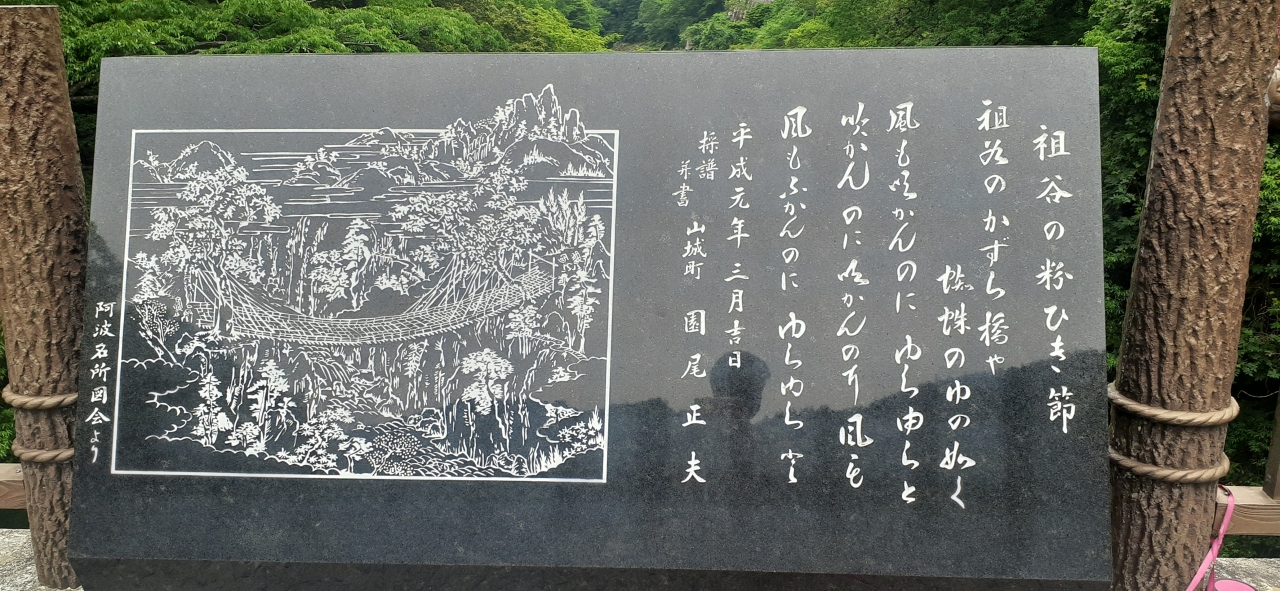 祖谷の粉ひき節
祖谷のかずら橋や
蜘蛛のゆの如く
風も吹かんのに ゆらゆらと
吹かんのに吹かんのに 風も
風もふかんのに ゆらゆらと
平成元年 三月吉日
採譜
并書
山城町 園尾正夫
阿波名所図会より